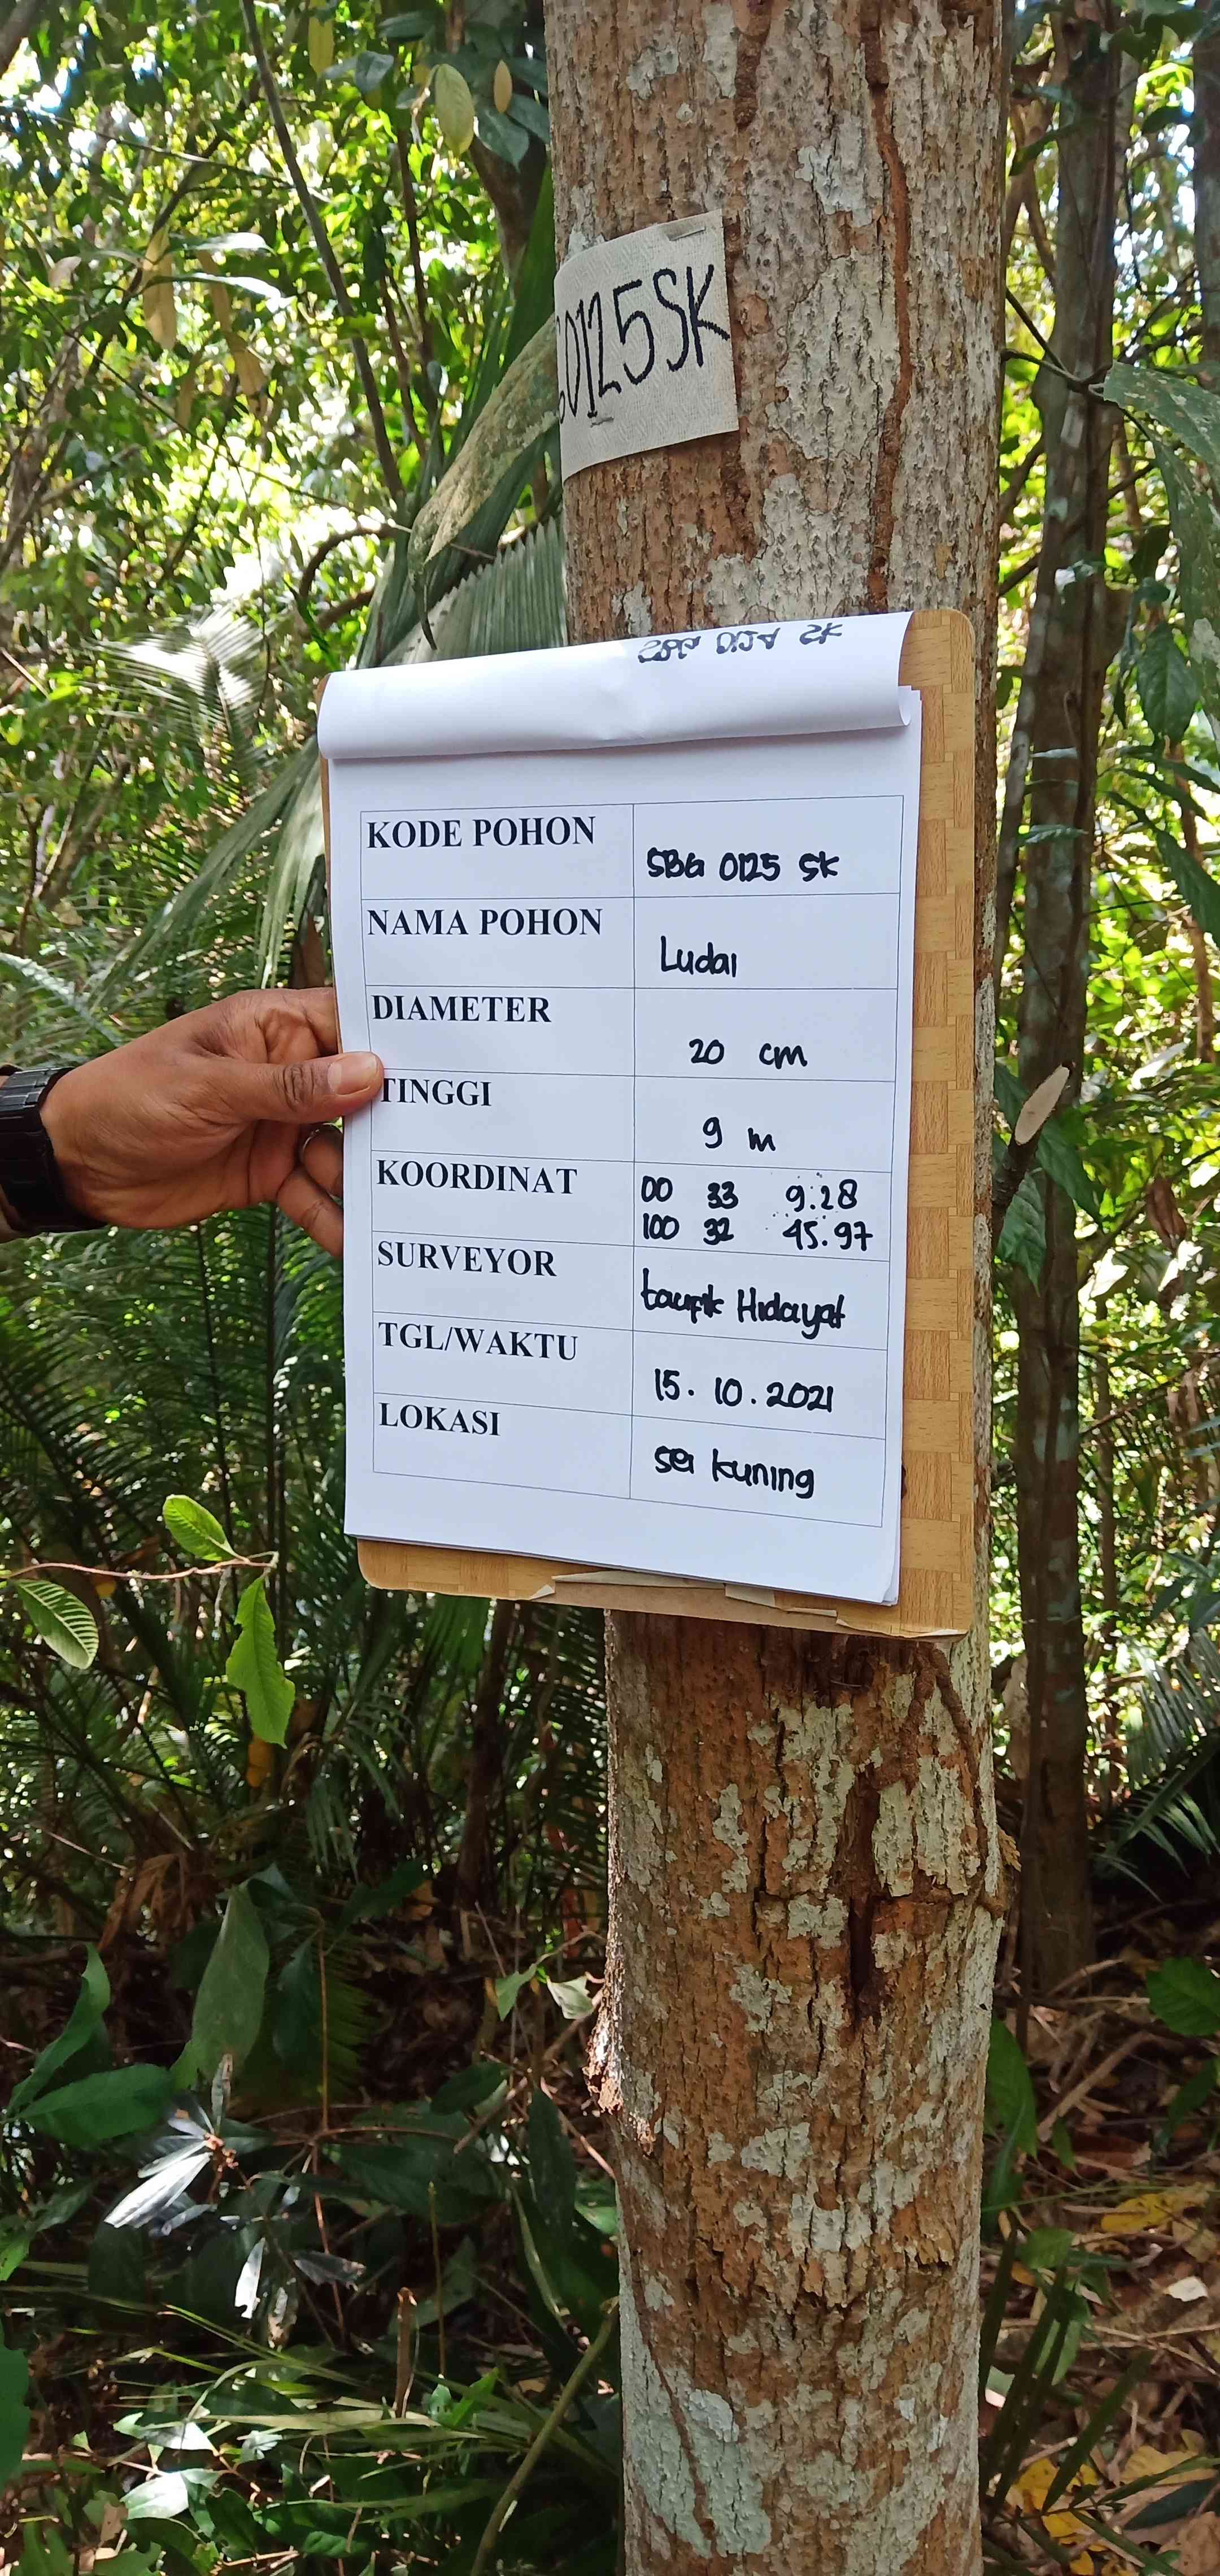 0125SK
KODE POHON
SBG 0125 SK
NAMA POHON
Ludai
DIAMETER
20 cm
TINGGI
9 m
KOORDINAT
00 33 9.28
100 32 45.97
SURVEYOR
taufik Hidayat
TGL/WAKTU
15.10.2021
LOKASI
sei kuning